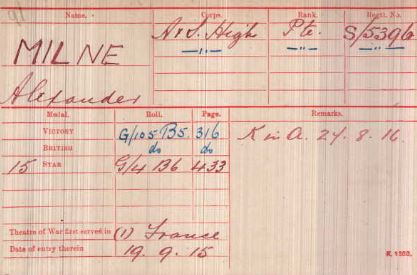 Name. Corps. Rank. Regtl. No.
MILNE A & S. High Pte. S/5396
—"— —"— —"—
Alexander
Medal. Roll. Page. Remarks.
VICTORY G/105 B5 316 K in A. 24.8.16.
BRITISH do do
15 STAR G/4 B6 433
Theatre of War first served in (1) France
Date of entry therein 19.9.15
K 1380.